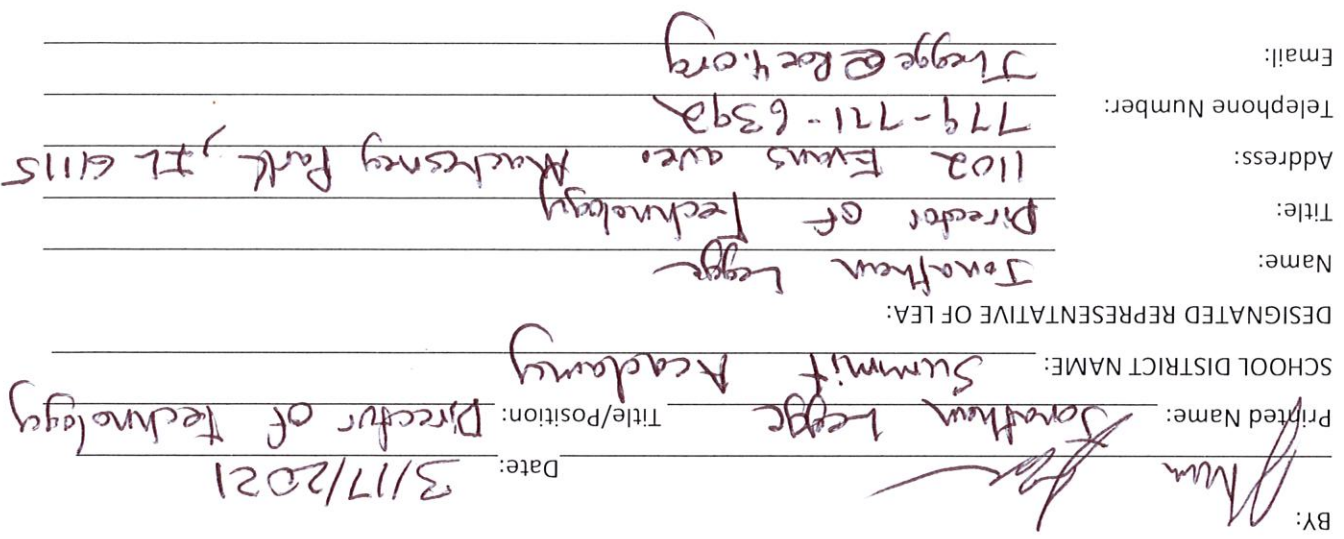 BY: Date: 3/17/2021
Printed Name: Jonathan Legge Title/Position: Director of Technology
SCHOOL DISTRICT NAME: Summit Academy
DESIGNATED REPRESENTATIVE OF LEA:
Name: Jonathan Legge
Title: Director of Technology
Address: 1102 Evans ave. Machesney Park, IL 61115
Telephone Number: 779-771-6392
Email: Jlegge@Roe4.org